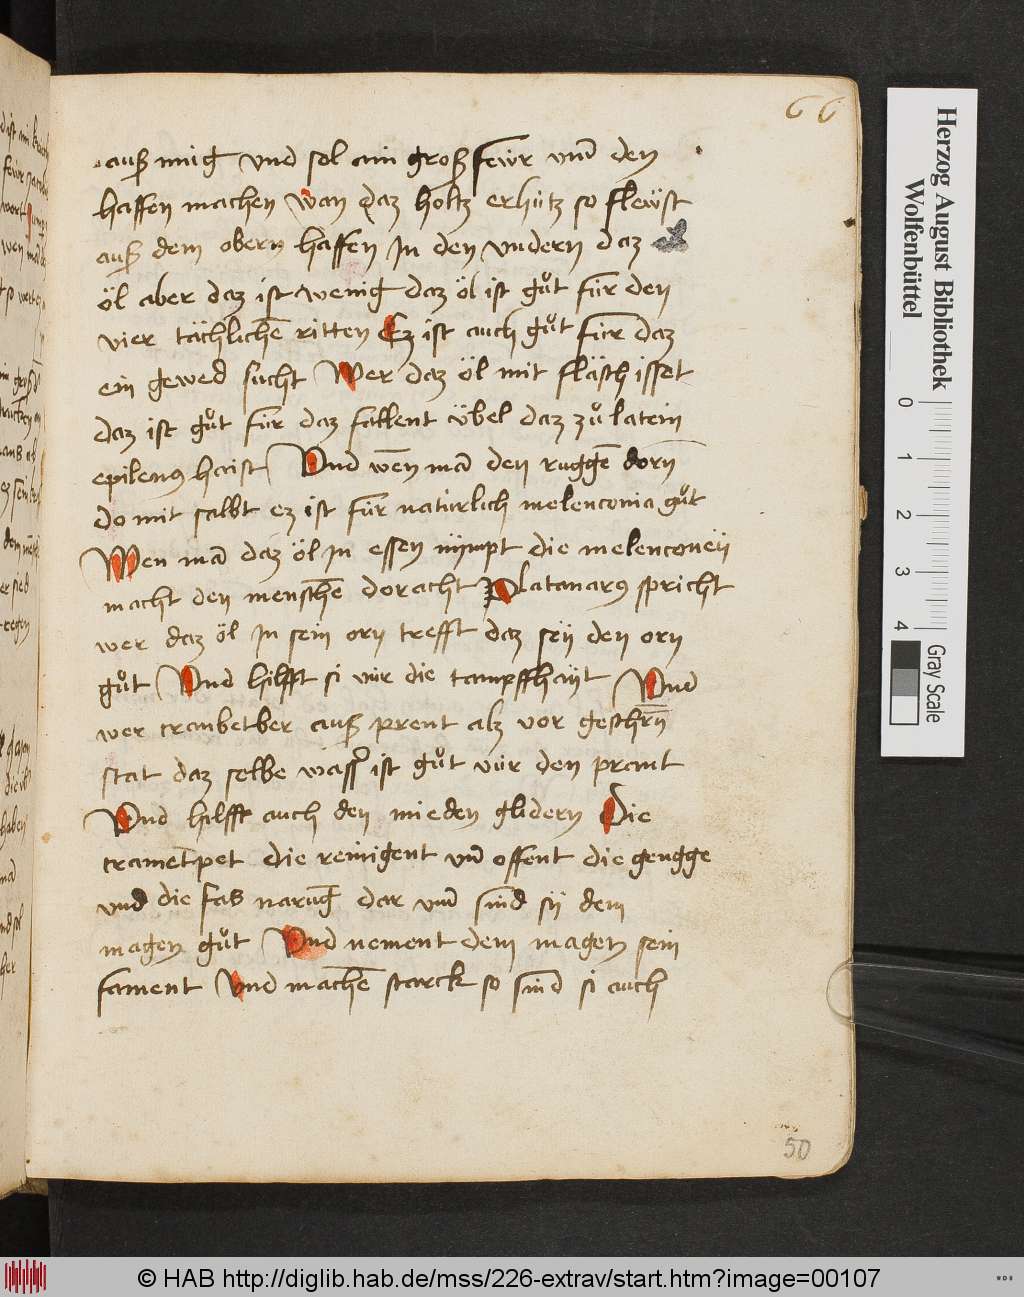 66
auß müg vnd sol ain groß feẅr vm̄ den
haffen machen wan daz holtz erhitz so flewst
auß dem obern haffen In den vndern daz
öl aber daz ist wenig daz öl ist gůt für den
vier tächlichē ritten Ez ist auch gůt für daz
ein geweid sucht Wer daz öl mit fläsch isset
daz ist gůt für daz fallent v̈bel daz zů latein
epilenꝰ haist Vnd wen̄ mā den ruggē dorn̄
do mit salbt ez ist für natürlich melenconia gůt
Wen mā daz öl In essen nympt die melenconeÿ
macht den menschē doracht Platanarꝰ spricht
wer daz öl In sein orn trefft daz seÿ den orn
gůt Vnd hilfft si vür die tampffhayt Vnd
wer cranbetber auß prent alz vor geschrn̄
stat daz selbe wasser ist gůt vür den prant
Vnd hilfft auch den mieden glidern Die
crametpet die reinigent vn̄ offent die gengge
vnd die fas narug̅ dar vm̄ sind sÿ dem
magen gůt Vnd nement dem magen sein
fament Vnd machē starck so sind si auch
50
Herzog August Bibliothek
Wolfenbüttel
0 1 2 3 4
Gray Scale
© HAB http://diglib.hab.de/mss/226-extrav/start.htm?image=00107